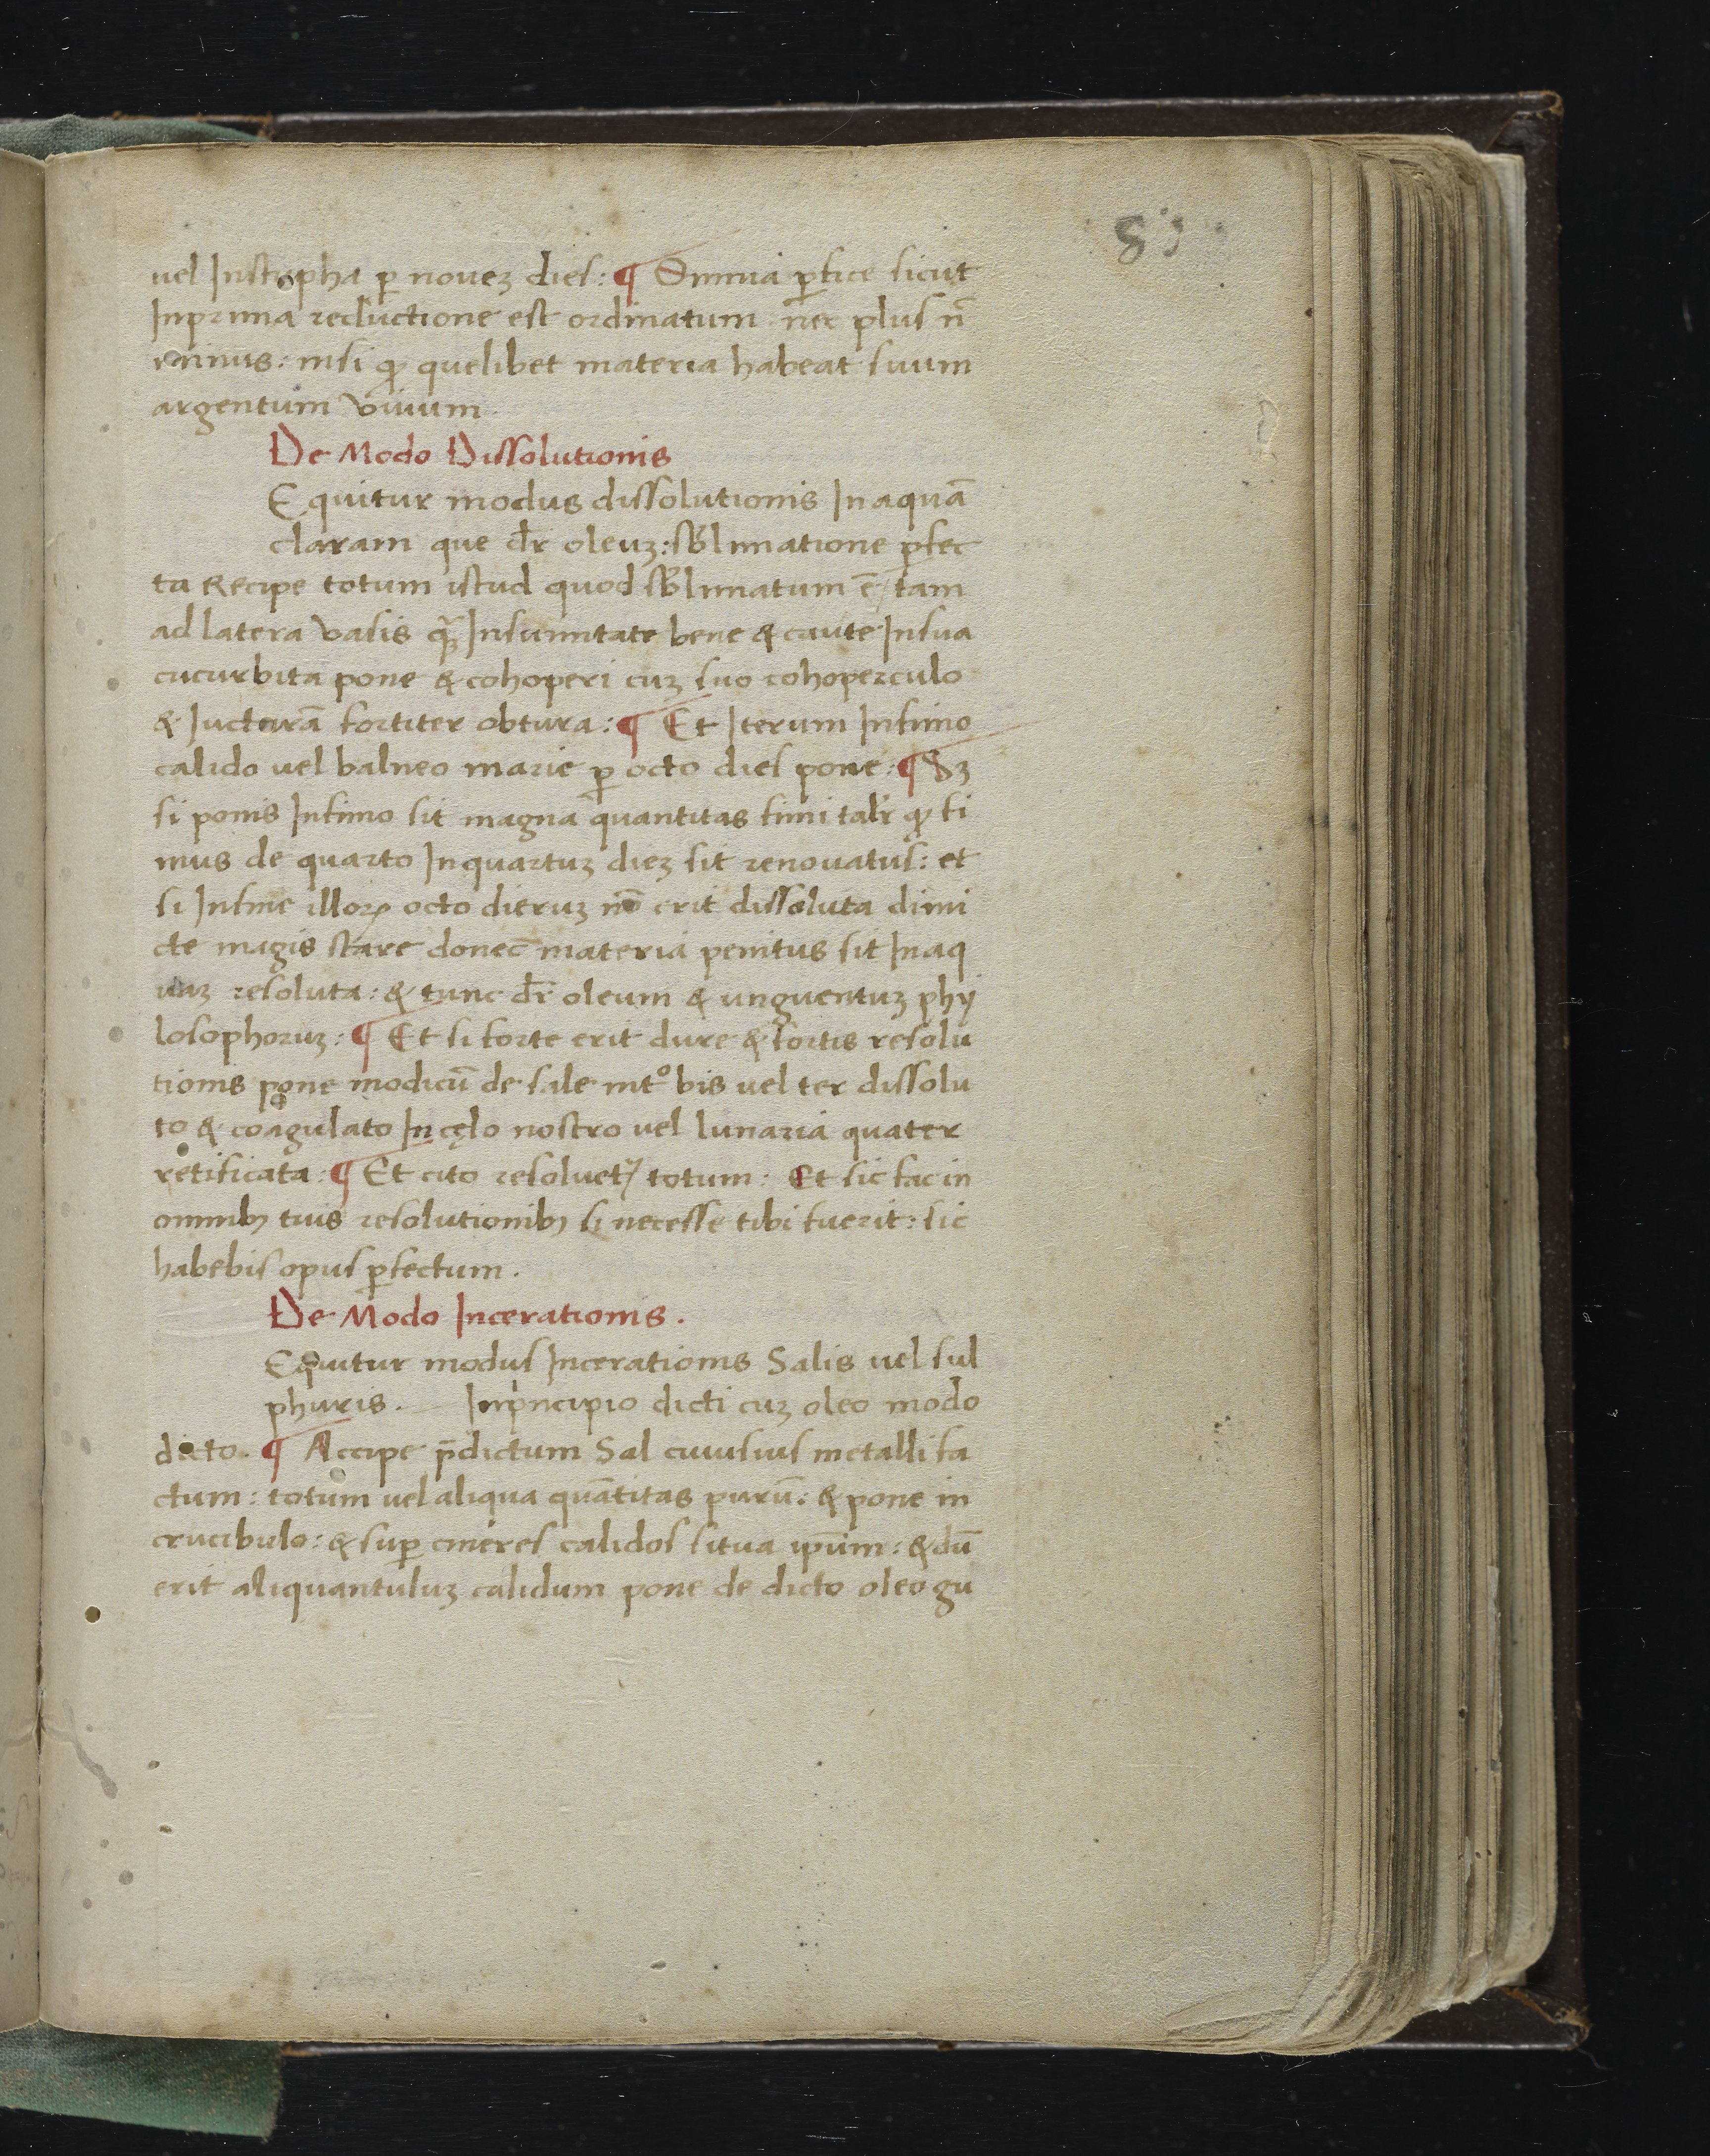 vel Instupha ꝑ novez dies: ¶ Omnia ꝑfice sicut
Inprima reductione est ordinatum nec plus n̄
minus: nisi ꝙ quelibet materia habeat suum
argentum vivum.
De Modo Dissolutionis
Equitur modus dissolutionis In aquā
claram que dr̄ oleuz: sb̄limatione ꝑfec
ta Recipe totum istud quod sb̄limatum ē / tam
ad latera vasis qͣ̄ Insumitate bene & caute Insua
cucurbita pone & cohoperi cuz suo cohoperculo
& Iucturā fortiter obtura: ¶ Et Iterum Infimo
calido vel balneo marie ꝑ octo dies pone: ¶ Sz
si ponis Infimo sit magna quantitas fimi talr̄ ꝙ fi
mus de quarto Inquartuz diez sit renovatus: et
si Infine illoꝝ octo dieruz nō erit dissoluta dimi
cte magis stare donec materia penitus sit Inaq
uaz resoluta: & tunc dr̄ oleum & unguentuz phy
losophoruz: ¶ Et si forte erit dure & fortis resolu
tionis pone modicū de sale nrō bis vel ter dissolu
to & coagulato In cęlo nostro vel lunaria quater
retificata: ¶ Et cito resoluetʳ totum: Et sic fac in
omnibꝫ tuis resolutionibꝫ si necesse tibi fuerit: sic
habebis opus ꝑfectum.
De Modo Incerationis.
Equitur modus Incerationis Salis vel sul
phuris. Inpͥncipio dicti cuz oleo modo
dicto. ¶ Accipe p̄dictum Sal cuiusius metalli fa
ctum: totum vel aliqua quātitas purū: & pone in
crucibulo: & suꝑ cineres calidos situa ip̄um: & dū
erit aliquantuluz calidum pone de dicto oleo gu